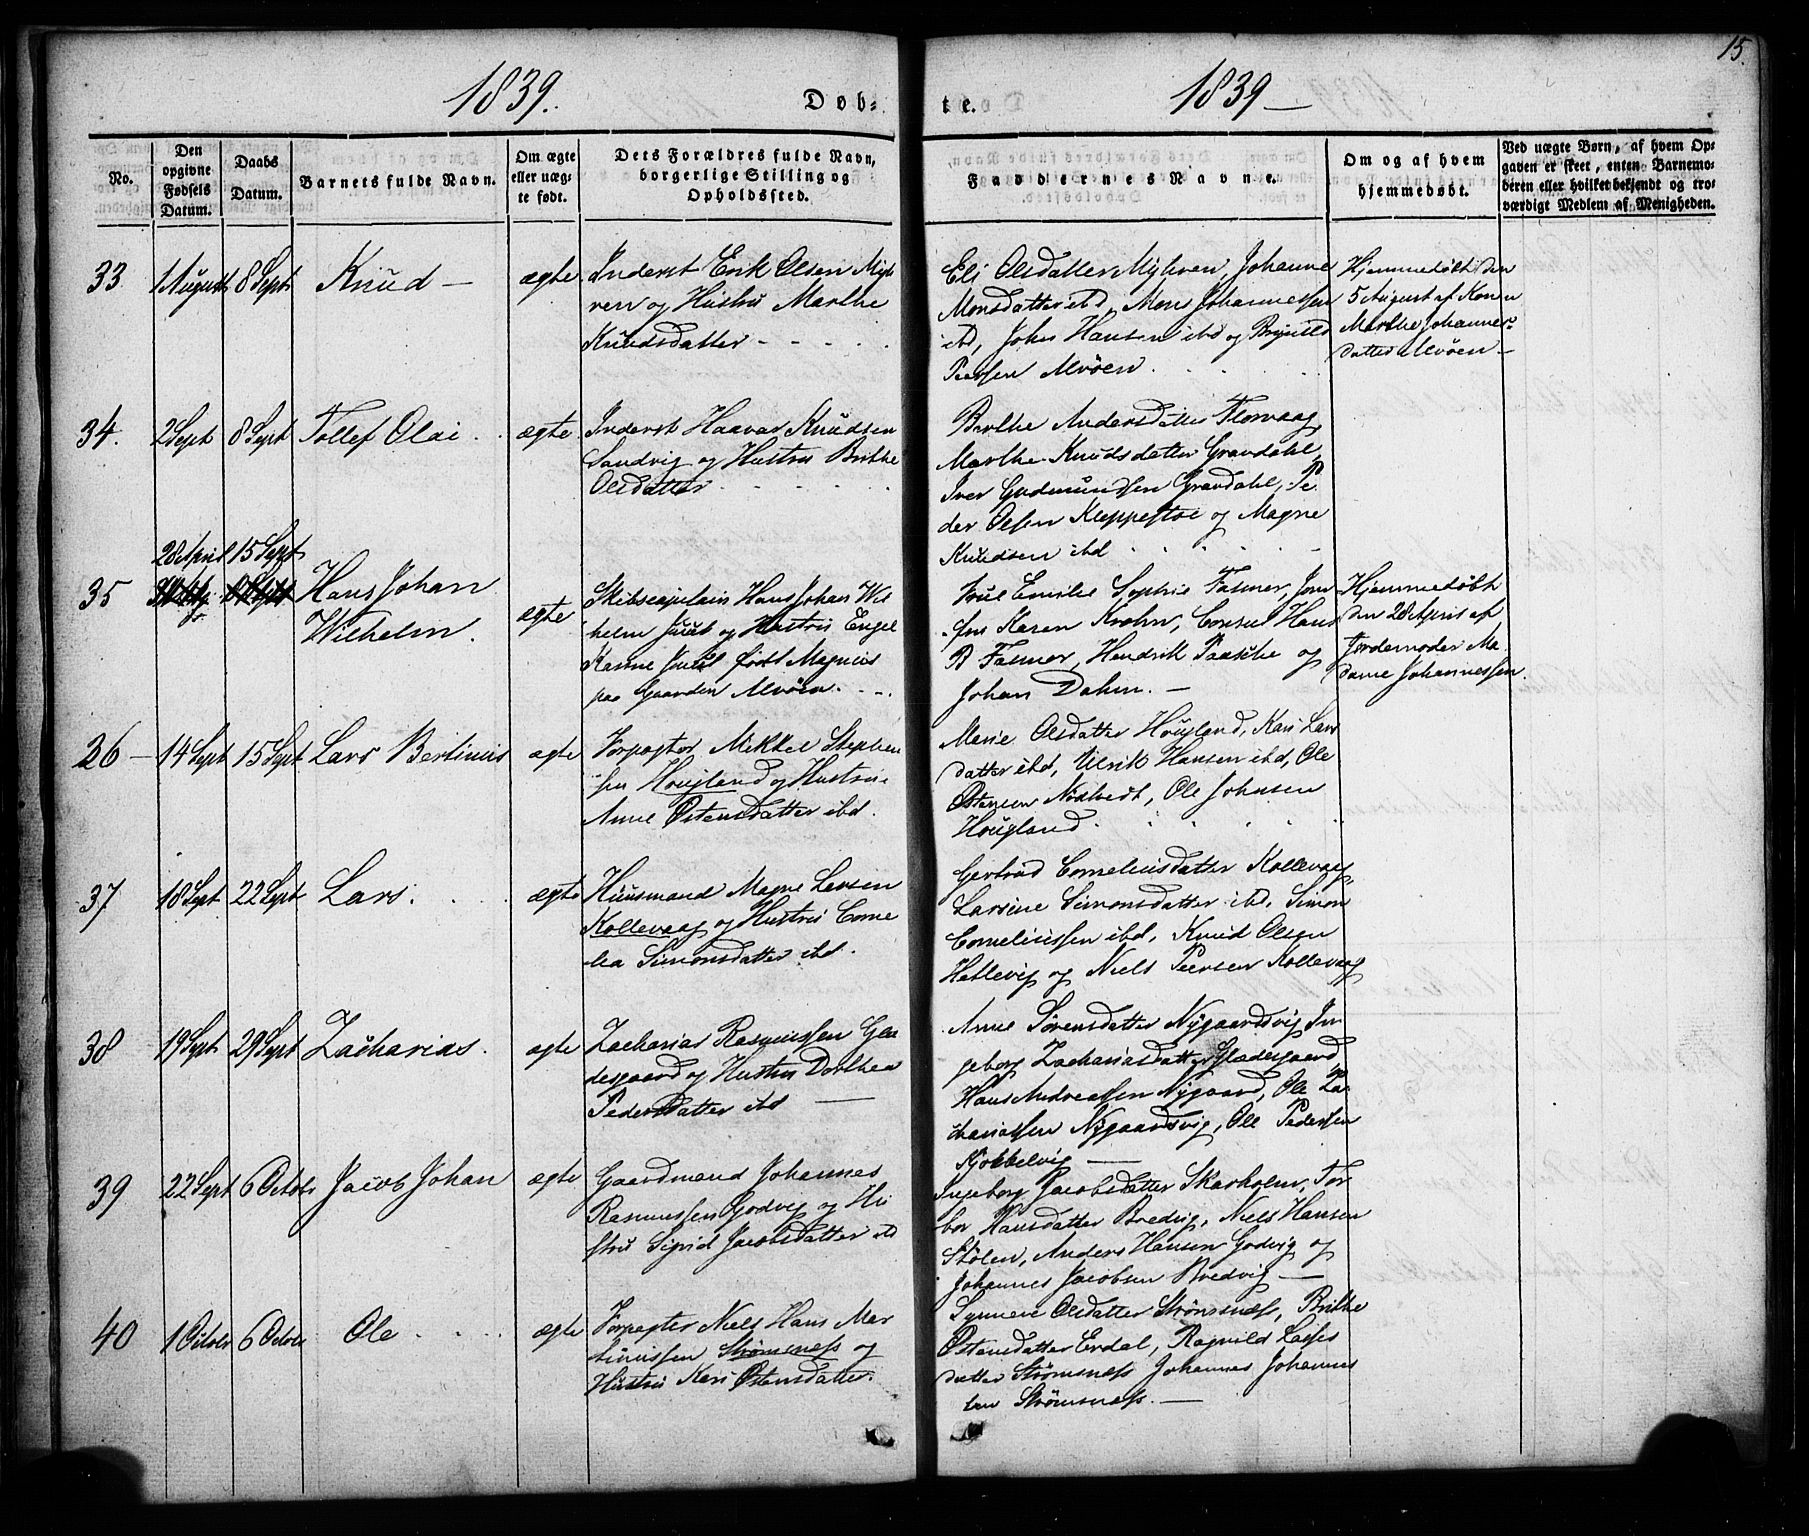 15.
1839. Døb-
te. 1839 —
No.
Den opgivne Fødsels Datum.
Daabs Datum.
Barnets fulde Navn.
Om ægte eller uægte født.
Dets Forældres fulde Navn,
borgerlige Stilling og
Opholdssted.
Faddernes Navne.
Om og af hvem
hjemmedøbt.
Ved uægte Børn, af hvem Op-
gaven er skeet, enten Barnemo-
deren eller hvilket bekjendt og tro-
værdigt Medlem af Menigheden.
33
1 August
8 Sept
Knud —
ægte
Inderst Erik Olsen Myh
ren og Hustru Marthe
Knudsdatter
Eli Olsdatter Myhren, Johanne
Monsdatter ibd, Mons Johannessen
ibd, John Hansen ibd og Brynild
Peersen Alvöen
Hjemmedöbt den
5 August af Konen
Marthe Johannes-
datter Alvöen —
34.
2 Sept
8 Sept
Tollef Olai
ægte
Inderst Haavar Knudsen
Sandvig og Hustru Brithe
Olsdatter
Berthe Andersdatter Florvaag,
Marthe Knudsdatter Gravdahl,
Iver Gudmundsen Gravdahl, Pe
der Olsen Kleppestöe og Magne
Knudsen ibd
28 April
15 Sept
35
Hans Johan
Wilhelm.
ægte
Skibscapitain Hans Johan Wil
helm Juul og Hustru Engel
Kanne Juul født Magnus
paa Gaarden Alvöen.
Frue Emilie Sophie Fasmer, Jom
fru Karen Krohn, Consul Hans
B Fasmer, Hendrik Paasche og
Johan Dahm. —
Hjemmedöbt
den 28 April af
Jordemoder Ma
dame Johannessen
36 —
14 Sept
15 Sept
Lars Bertinus
ægte
Forpagter Mikkel Stephen
sen Hougland og Hustrue
Anne Østensdatter ibd.
Marie Olsdatter Hougland, Kari Lars
datter ibd, Ulrik Hansen ibd, Ole
Østensen, Ole Johnsen
Hougland.
37
18 Sept
22 Sept
Lars.
ægte
Huusmand Magne Larsen
Kollevaag og Hustru Corne
lia Simonsdatter ibd.
Gertrud Corneliusdatter Kollevaag,
Larsine Simonsdatter ibd. Simon
Corneliussen ibd, Knud Olsen
Hellevig og Niels Peersen Kollevaag
38
19 Sept
29 Sept
Zacharias.
ægte
Zacharias Rasmussen Glæ
desgaard og Hustru Dorthea
Pedersdatter ibd —
Anne Sørensdatter Nygaardsvig, In
geborg Zachariasdatter Glædesgaard
Hans Andreassen Nygaard, Ole Za
chariassen Nygaardsvig, Ole Pedersen
Kjøkkelvig —
39
22 Sept
6 Octobr
Jacob Johan
ægte
Gaardmand Johannes
Rasmussen Godvig og Hu
stru Sigrid Jacobsdatter ibd
Ingeborg Jacobsdatter Skarholm, Tor
bor Hansdatter Bredvig, Niels Hansen
Stölen, Anders Hansen Godvig og
Johannes Jacobsen Bredvig —
40
1 Octobr
6 Octobr
Ole
ægte
Forpagter Niels Hans Mar
tinussen Strömsnæss og
Hustru Kari Østensdatter.
Synneve Olsdatter Strömsnæss, Brithe
Østensdatter Erdal, Ragnild Lasses
datter Strömsnæss Johannes Johannes
sen Strömsnæss. —